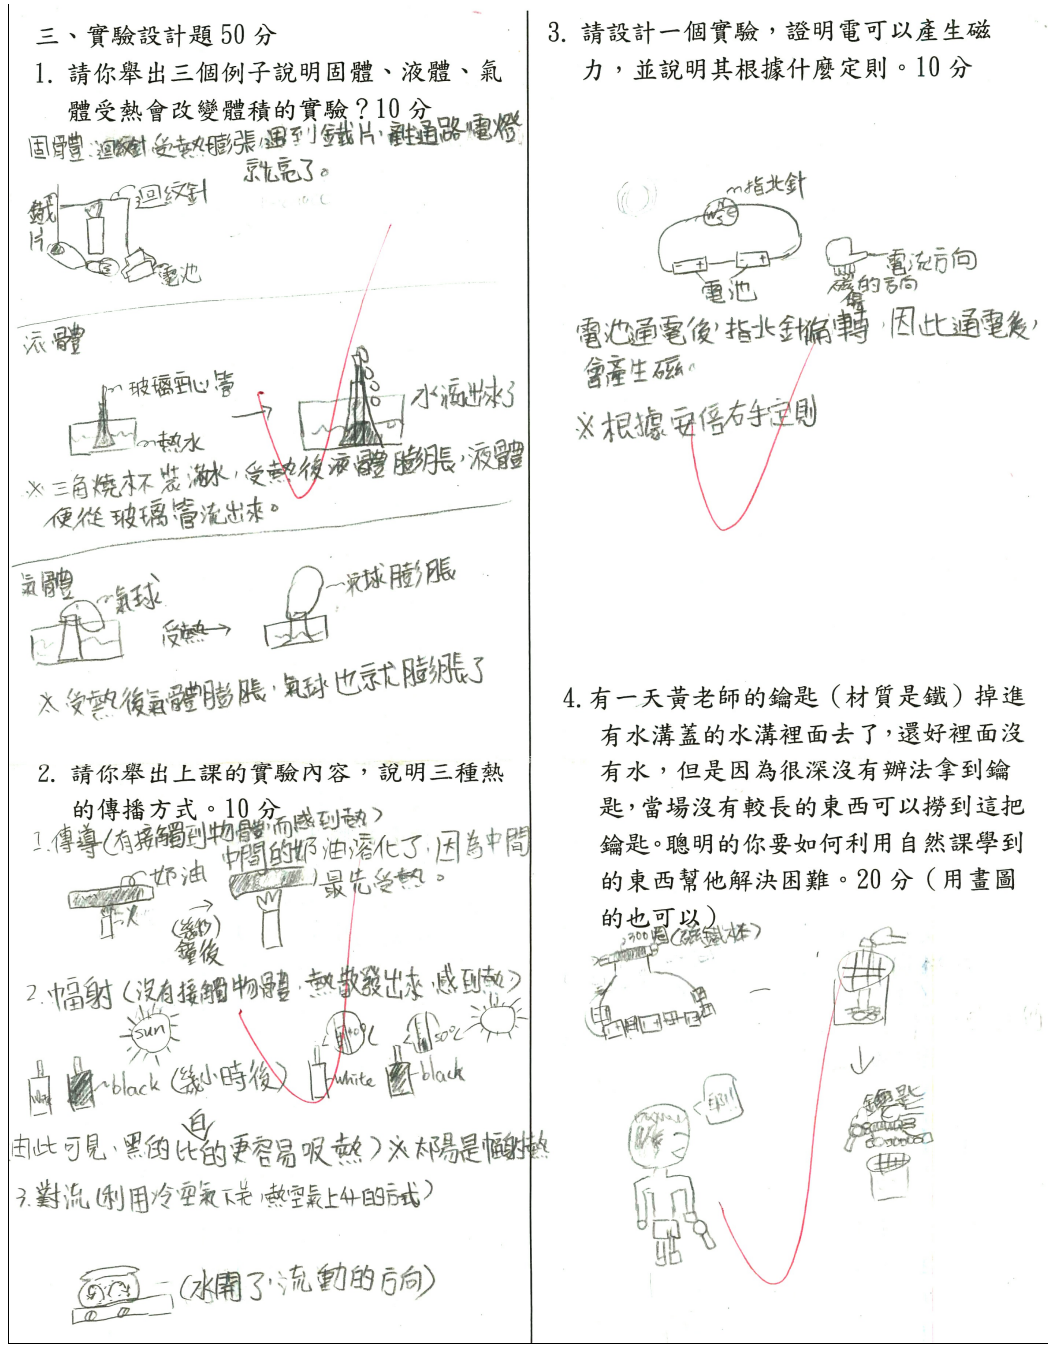 三、實驗設計題 50 分
1. 請你舉出三個例子說明固體、液體、氣
體受熱會改變體積的實驗?10分
固體:迴紋針受熱膨張,遇到鐵片,通路電燈
就亮了。
迴紋針
鐵片
電池
液體
玻璃空心管
熱水
水流出來了
※三角燒杯裝滿水,受熱後液體膨脹,液體
便從玻璃管流出來。
氣體
氣球
受熱
氣球膨脹
※受熱後氣體膨脹,氣球也就膨脹了
2. 請你舉出上課的實驗內容,說明三種熱
的傳播方式。10 分
1.傳導(有接觸到物體,而感到熱)
中間的奶油溶化了,因為中間
最先受熱。
奶油
火
(幾秒)
鐘後
2.幅射(沒有接觸物體,熱散發出來,感到熱)
sun
50°C
black (幾小時後) white black
因此可見,黑的比白的更容易吸熱)※太陽是幅射熱
3.對流(利用冷空氣下,熱空氣上升的方式)
(水開了,流動的方向)
3. 請設計一個實驗,證明電可以產生磁
力,並說明其根據什麼定則。10 分
指北針
電池
電流方向
電池通電後,指北針偏轉,因此通電後,
會產生磁。
※根據安培右手定則
4. 有一天黃老師的鑰匙(材質是鐵)掉進
有水溝蓋的水溝裡面去了,還好裡面沒
有水,但是因為很深沒有辦法拿到鑰
匙,當場沒有較長的東西可以撈到這把
鑰匙。聰明的你要如何利用自然課學到
的東西幫他解決困難。20 分(用畫圖
的也可以)
300圈(磁鐵棒)
鑰匙
耶!!